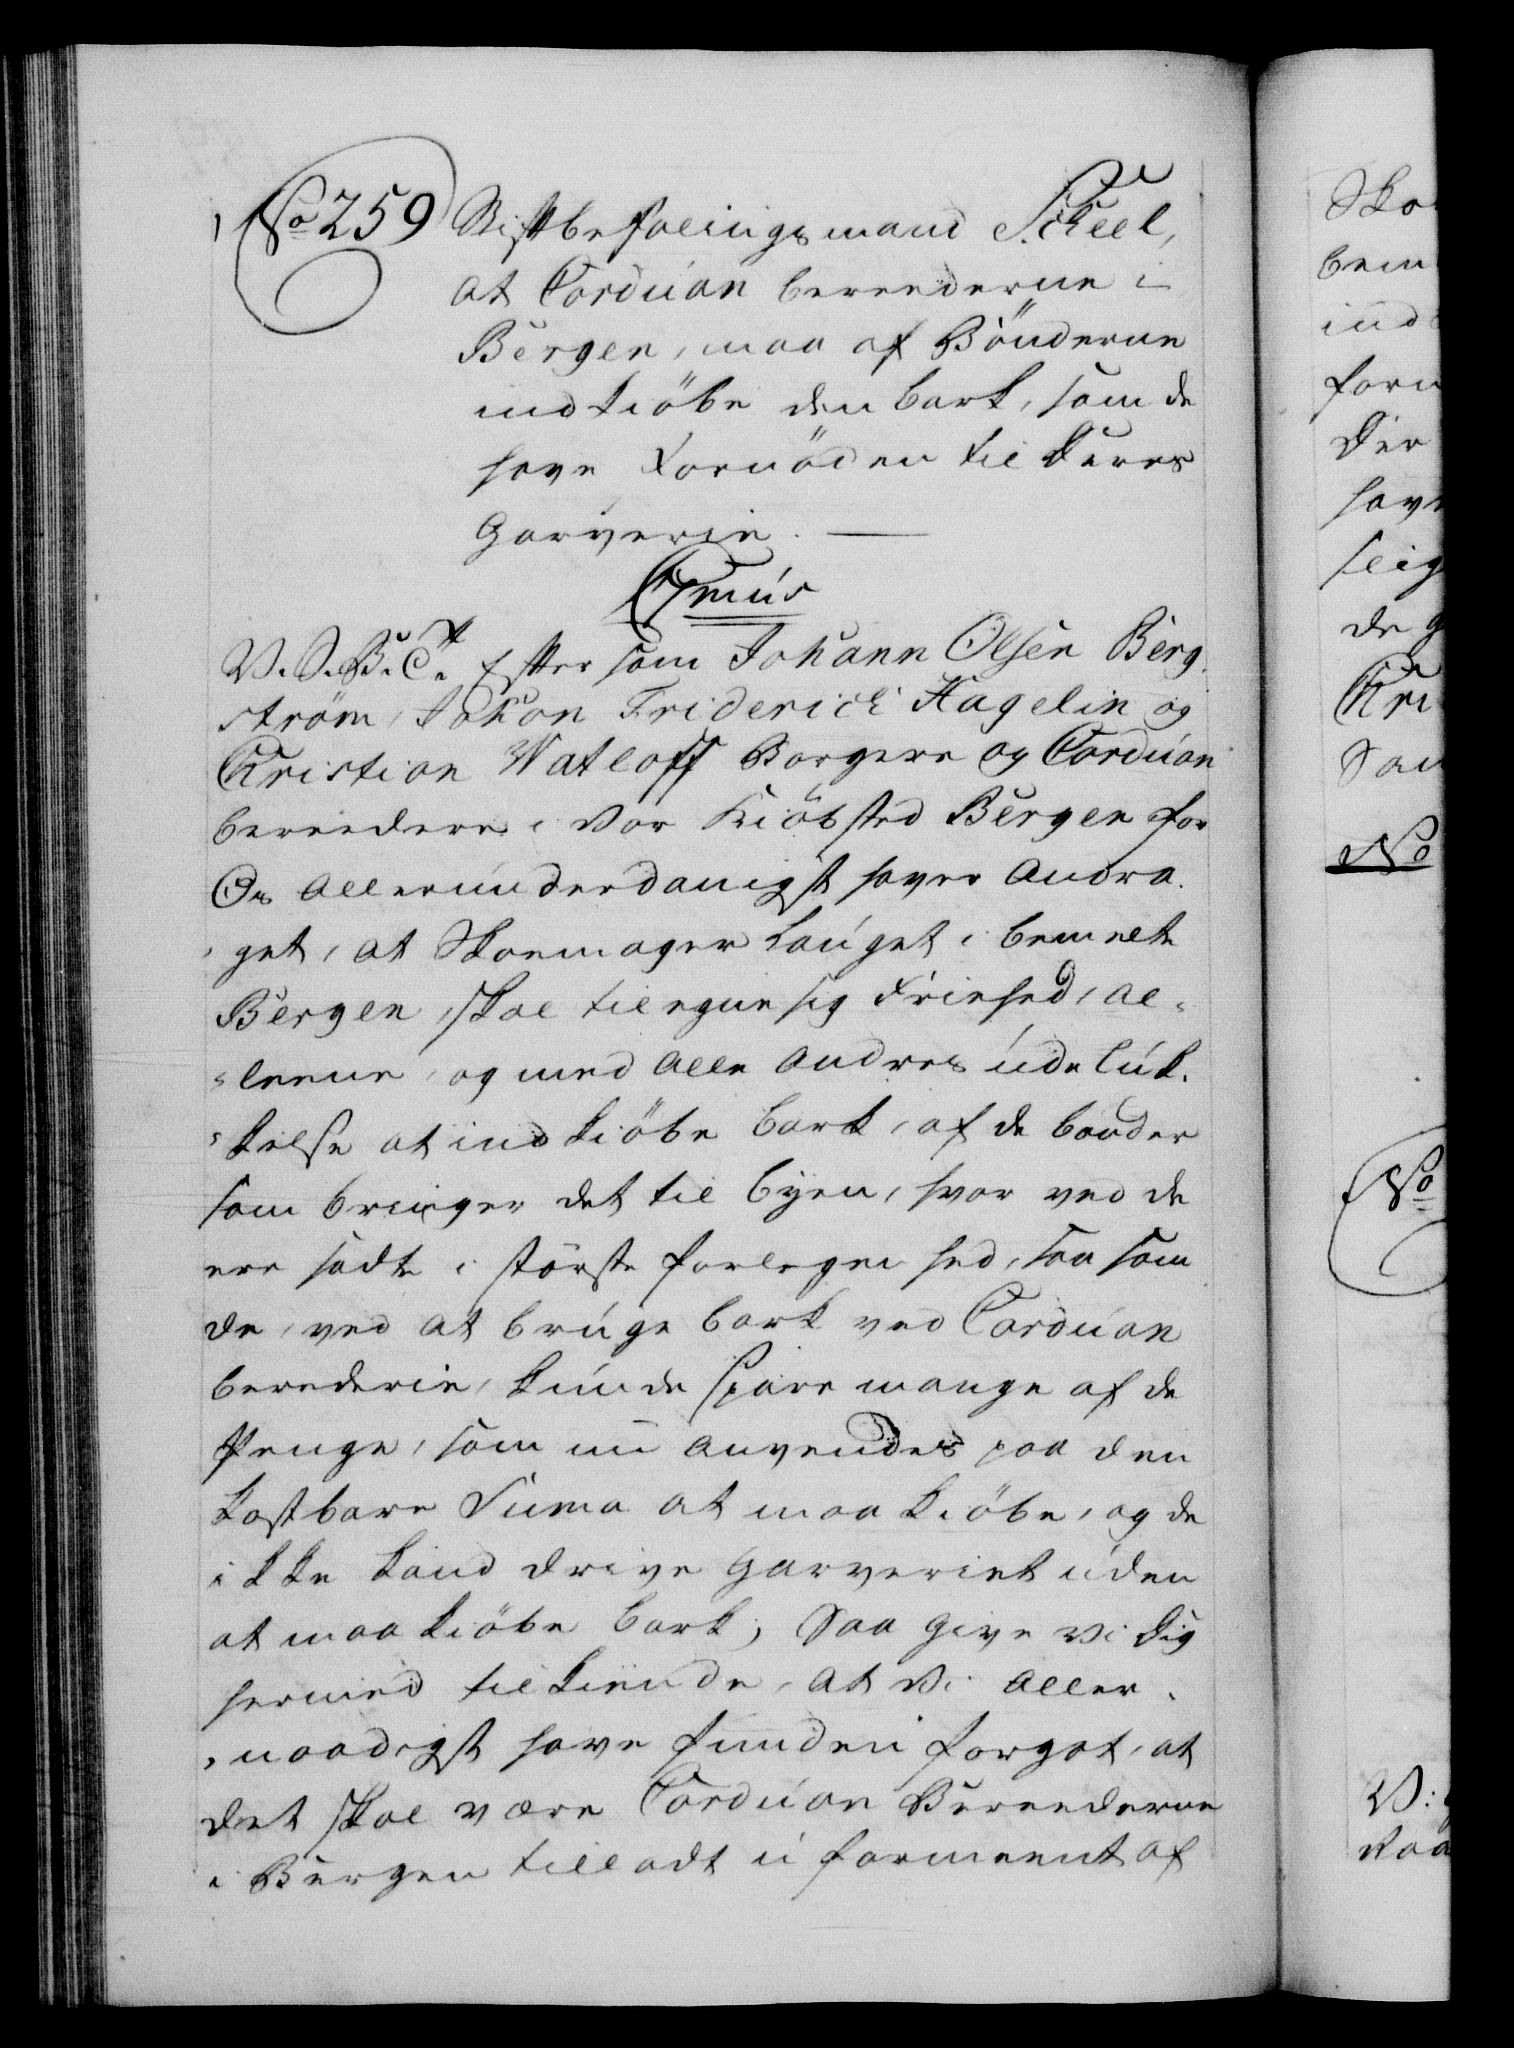 No 259 Stiftbefalingsmand Scheel,
at Corduan bereederne i
Bergen, maa af Bönderne
indkiöbe den bark, som de
have Fornöden til deres
Garverie. —
Cmús
V. S. B. C. Eftersom Johann Olsen Berg-
ström, Johan Friderich Hagelin og
Christian Watloff Borgere og Corduan
bereedere i Vor Kiöbsted Bergen for
Os allerunderdanigst haver Andra-
get, at Skoemager Lauget i bemelte
Bergen, skal tilegne sig Friehed, al-
leene og med alle Andres udeluk-
kelse at indkiöbe bark, af de bönder
som bringer det til byen, hvorved de
ere sadte i störste forlegenhed, saasom
de, ved at bruge bark ved Corduan
berederie, kunde spare mange af de
Penge, som nu anvendes paa den
kostbare Suma at maa kiöbe, og de
ikke kand drive Garveriet uden
at maa kiöbe bark; Saa give Vi dig
hermed tilkiende, at Vi aller-
naadigst have funden forgot, at
det skal være Corduan Bereederne
i Bergen tilladt uformeent af
Sko
bem
ind
forn
der
hav
sig
de g
Chri
San
No
No
V:
Raa